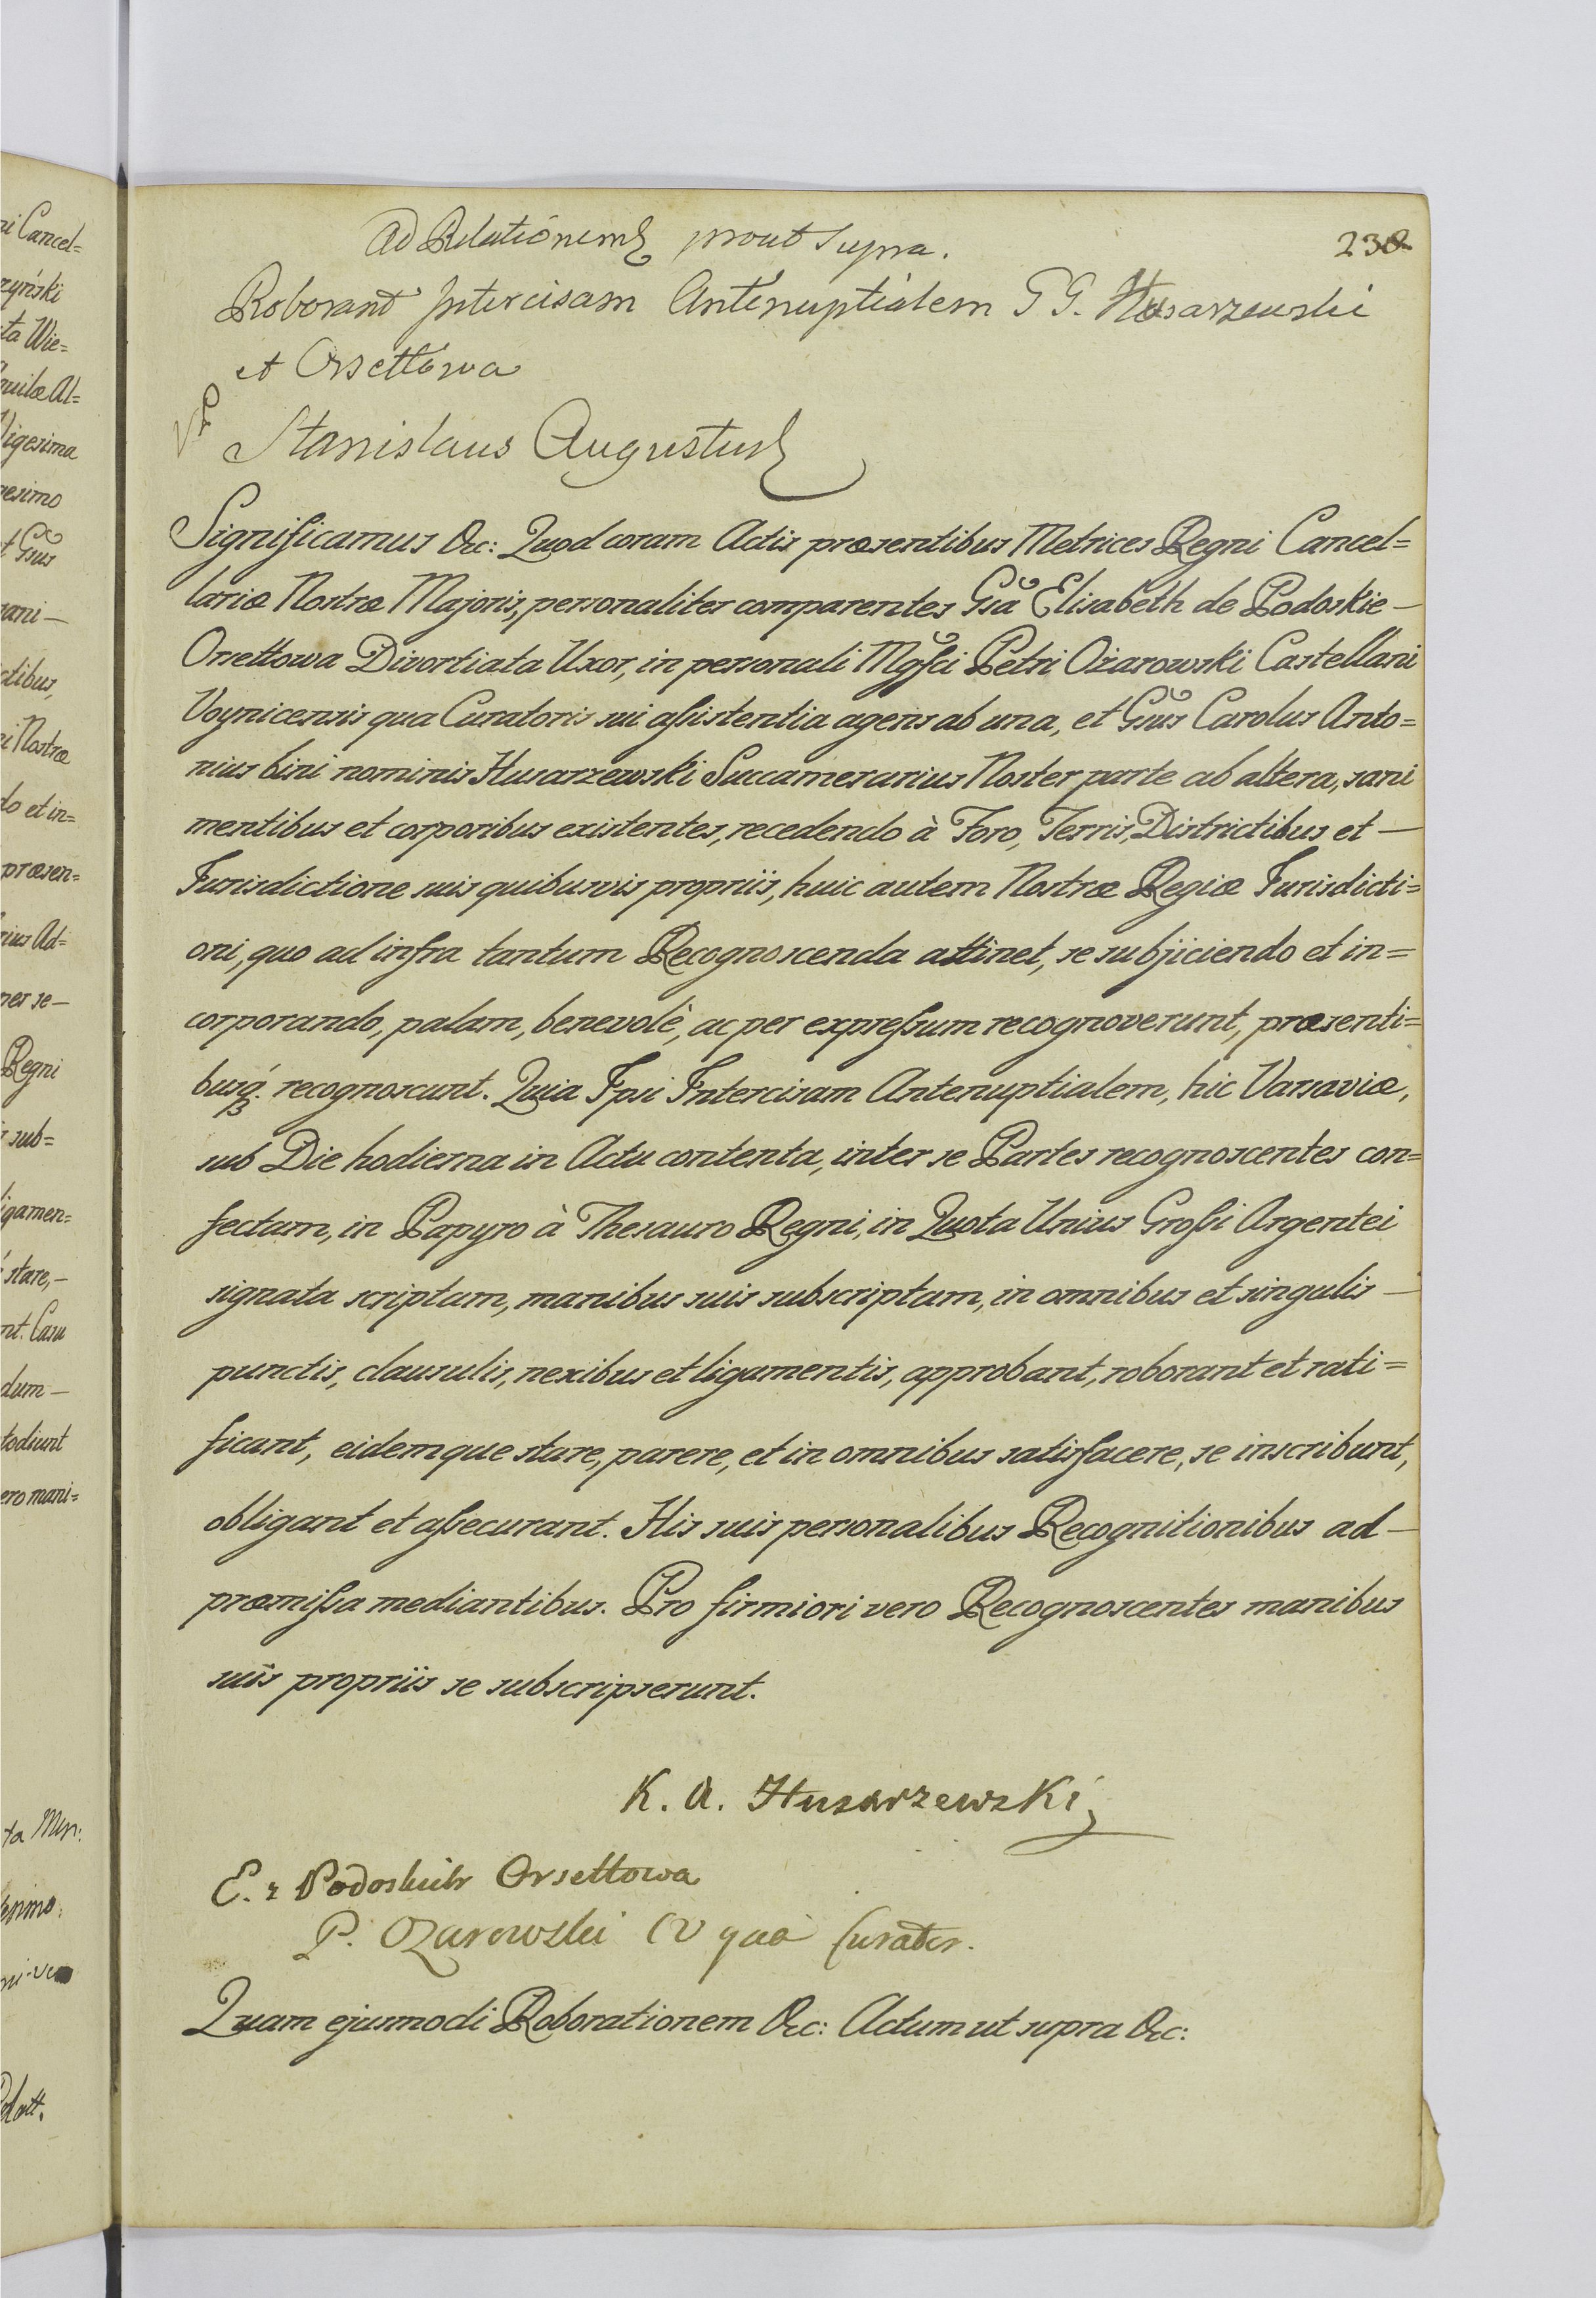 Ad Relationem prout Supra.
238
Roborant Intercisam Antenuptialem G G. Husarzewski
et Orsettowa
Stanislaus Augustus
Significamus &c: Quod coram Actis præsentibus Metrices Regni Cancel=
lariæ Nostræ Majoris, personaliter comparentes Gsa Elisabeth de Podoskie —
Orsettowa Divortiata Uxor, in personali Mgfci Petri Ożarowski Castellani
Voynicensis qua Curatoris sui aſsistentia agens ab una, et Gsus Carolus Anto=
nius bini nominis Husarzewski Succamerarius Noster parte ab altera, sani
mentibus et corporibus existentes, recedendo à Foro, Terris, Districtibus et —
Jurisdictione suis quibusvis propriis, huic autem Nostræ Regiæ Jurisdicti=
oni, quo ad infra tantum Recognoscenda attinet, se subjiciendo et in=
corporando, palam, benevolè, ac per expreſsum recognoverunt, præsenti=
busq́. recognoscunt. Quia Ipsi Intercisam Antenuptialem, hic Varsaviæ,
sub Die hodierna in Actu contenta, inter se Partes recognoscentes con=
fectam, in Papyro à Thesauro Regni, in Quota Unius Groſsi Argentei
signata scriptam, manibus suis subscriptam, in omnibus et singulis —
punctis, clausulis, nexibus et ligamentis, approbant, roborant et rati=
ficant, eidemque stare, parere, et in omnibus satisfacere, se inscribunt,
obligant et aſsecurant. His suis personalibus Recognitionibus ad —
præmiſsa mediantibus. Pro firmiori vero Recognoscentes manibus
suis propriis se subscripserunt.
K. A. Husarzewski
E. z Podoskich Orsettowa
P. Ozarowski CV quà Curator.
Quam ejusmodi Roborationem &c: Actum ut supra &c: